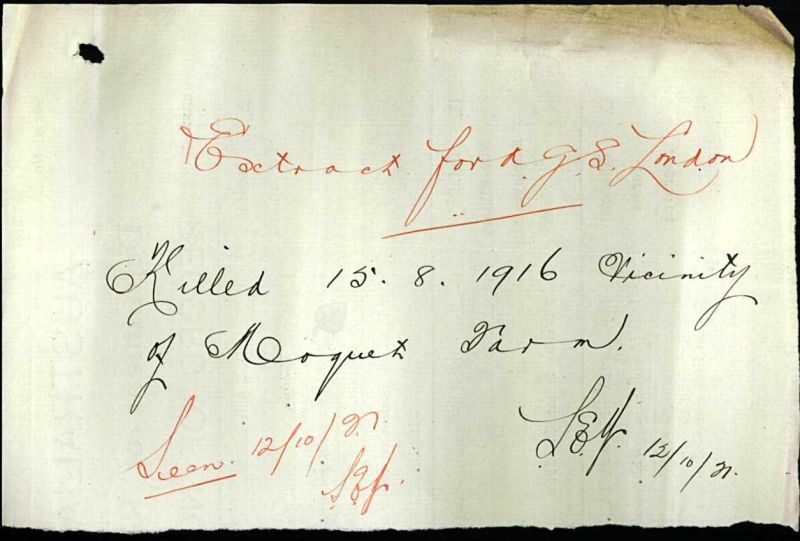 Extract for A.G.S. London
Killed 15. 8. 1916 Vicinity
of Moquet Farm.
Seen. 12/10/21.
12/10/21.